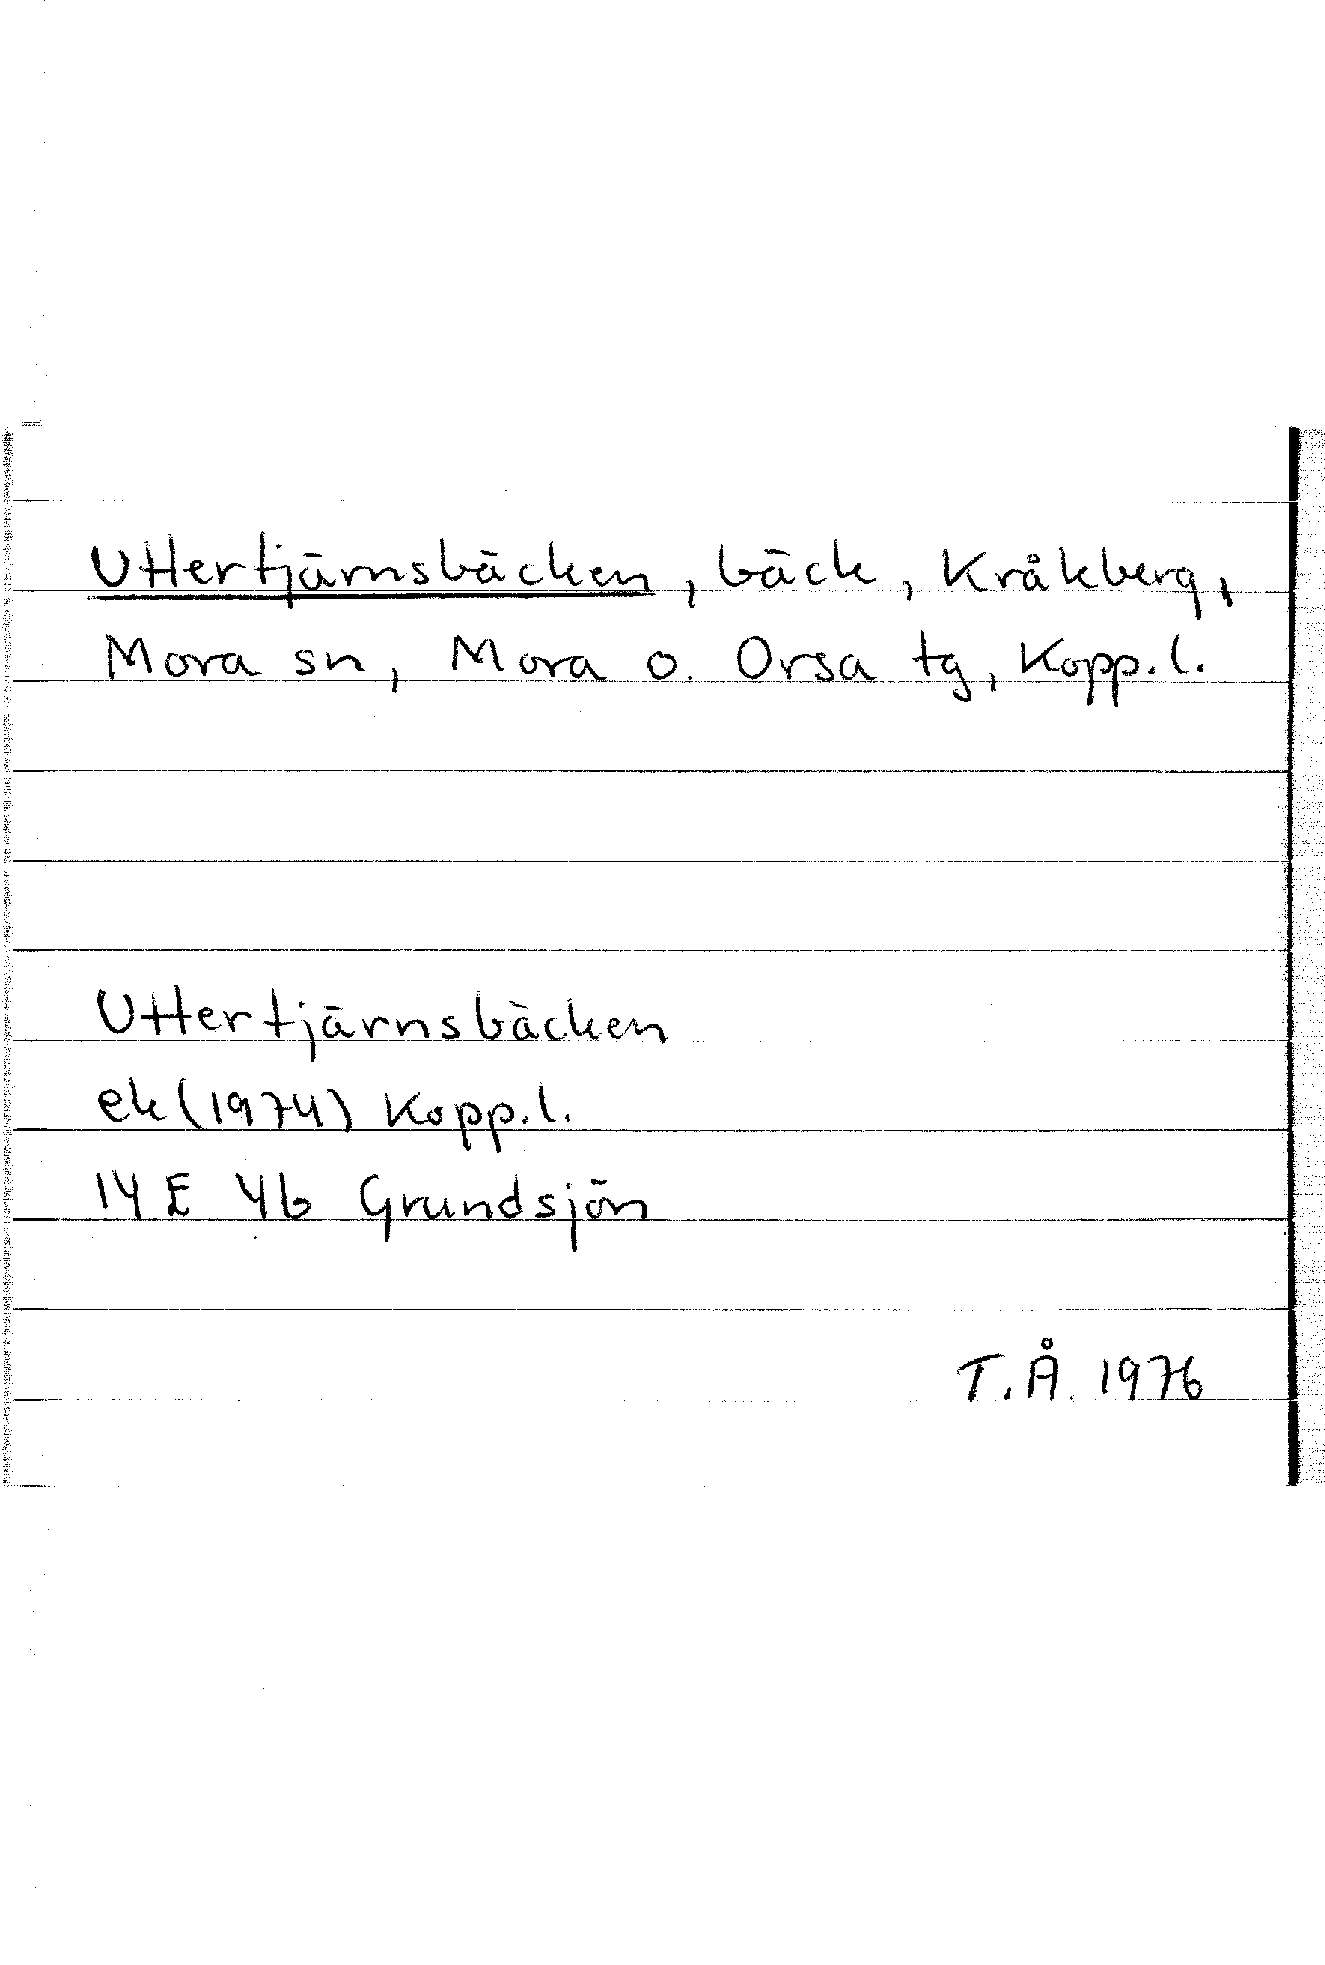 Uttertjärnsbäcken, bäck, Kråkberg,
Mora sn, Mora o. Orsa tg, Kopp.l.
Uttertjärnsbäcken
ek (1974) Kopp.l.
14 E 4b Grundsjön
T.Å. 1976